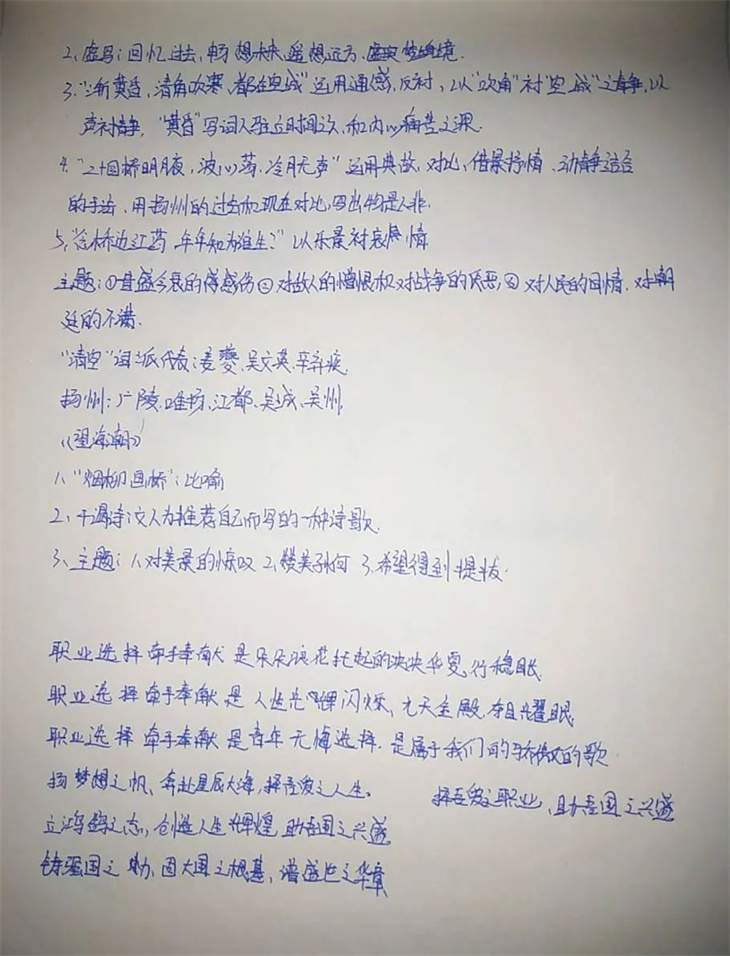 2、虚写:回忆过去,畅想未来,遥想远方,虚实梦境.
3."渐黄昏,清角吹寒,都在空城"运用通感,反衬,以"吹角"衬"空城"之静,以
声衬静,"黄昏"写词人驻立时间之久,和内心痛苦之深.
4."二十四桥明月夜,波心荡,冷月无声"运用典故,对比,借景抒情,动静结合
的手法,用扬州的过去和现在对比,写出物是人非.
5、"念桥边红药,年年知为谁生?"以乐景衬哀情
主题:①昔盛今衰的感伤②对敌人的憎恨和对战争的厌恶,③对人民的同情,对朝
廷的不满.
"清空"词派代表:姜夔、吴文英、辛弃疾.
扬州:广陵、维扬、江都、吴城、吴州.
《望海潮》
1、"烟柳画桥":比喻
2、干谒诗:文人为推荐自己而写的一种诗歌.
3、主题:1.对美景的惊叹 2.赞美孙何 3.希望得到提拔.
职业选择牵手奉献是朵朵浪花托起的泱泱华夏,行稳
职业选择牵手奉献是人性光辉闪烁,九天金殿,夺目耀眼,
职业选择牵手奉献是青年无悔选择,是属于我们的骄傲的歌
扬梦想之帆,奔赴星辰大海,择吾爱之人生。
择吾爱之职业,助吾国之兴盛
立鸿鹄之志,创造人生辉煌,助吾国之兴盛
铸强国之,固大国之根基,谱盛世之华章